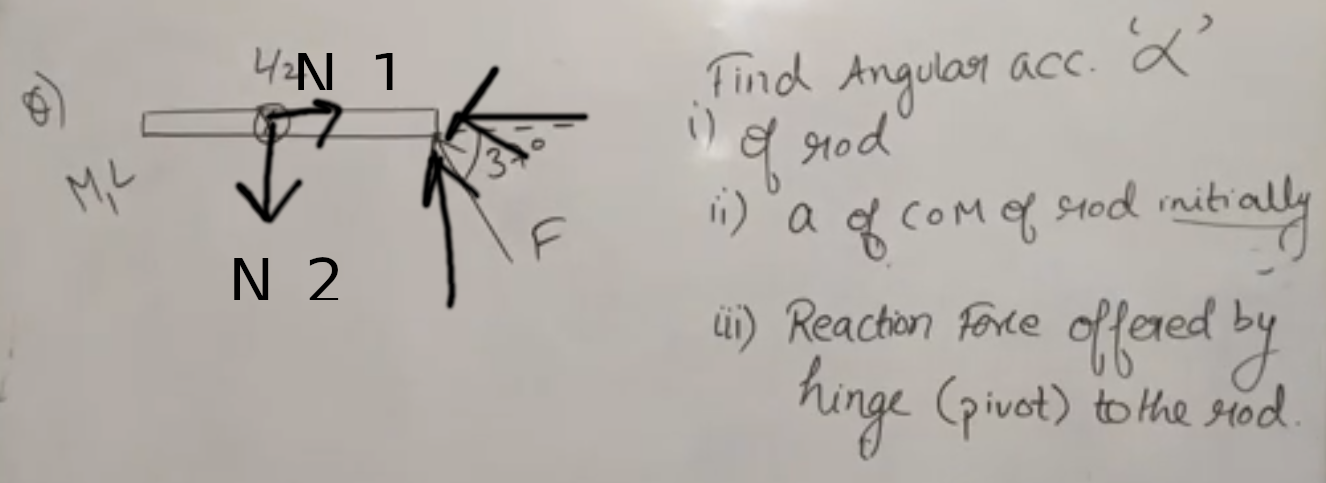 Q)
L/2
N 1
M, L
37°
F
N 2
Find Angular acc. 'α'
i) of rod
ii) a of COM of rod initially
iii) Reaction Force offered by
hinge (pivot) to the rod.